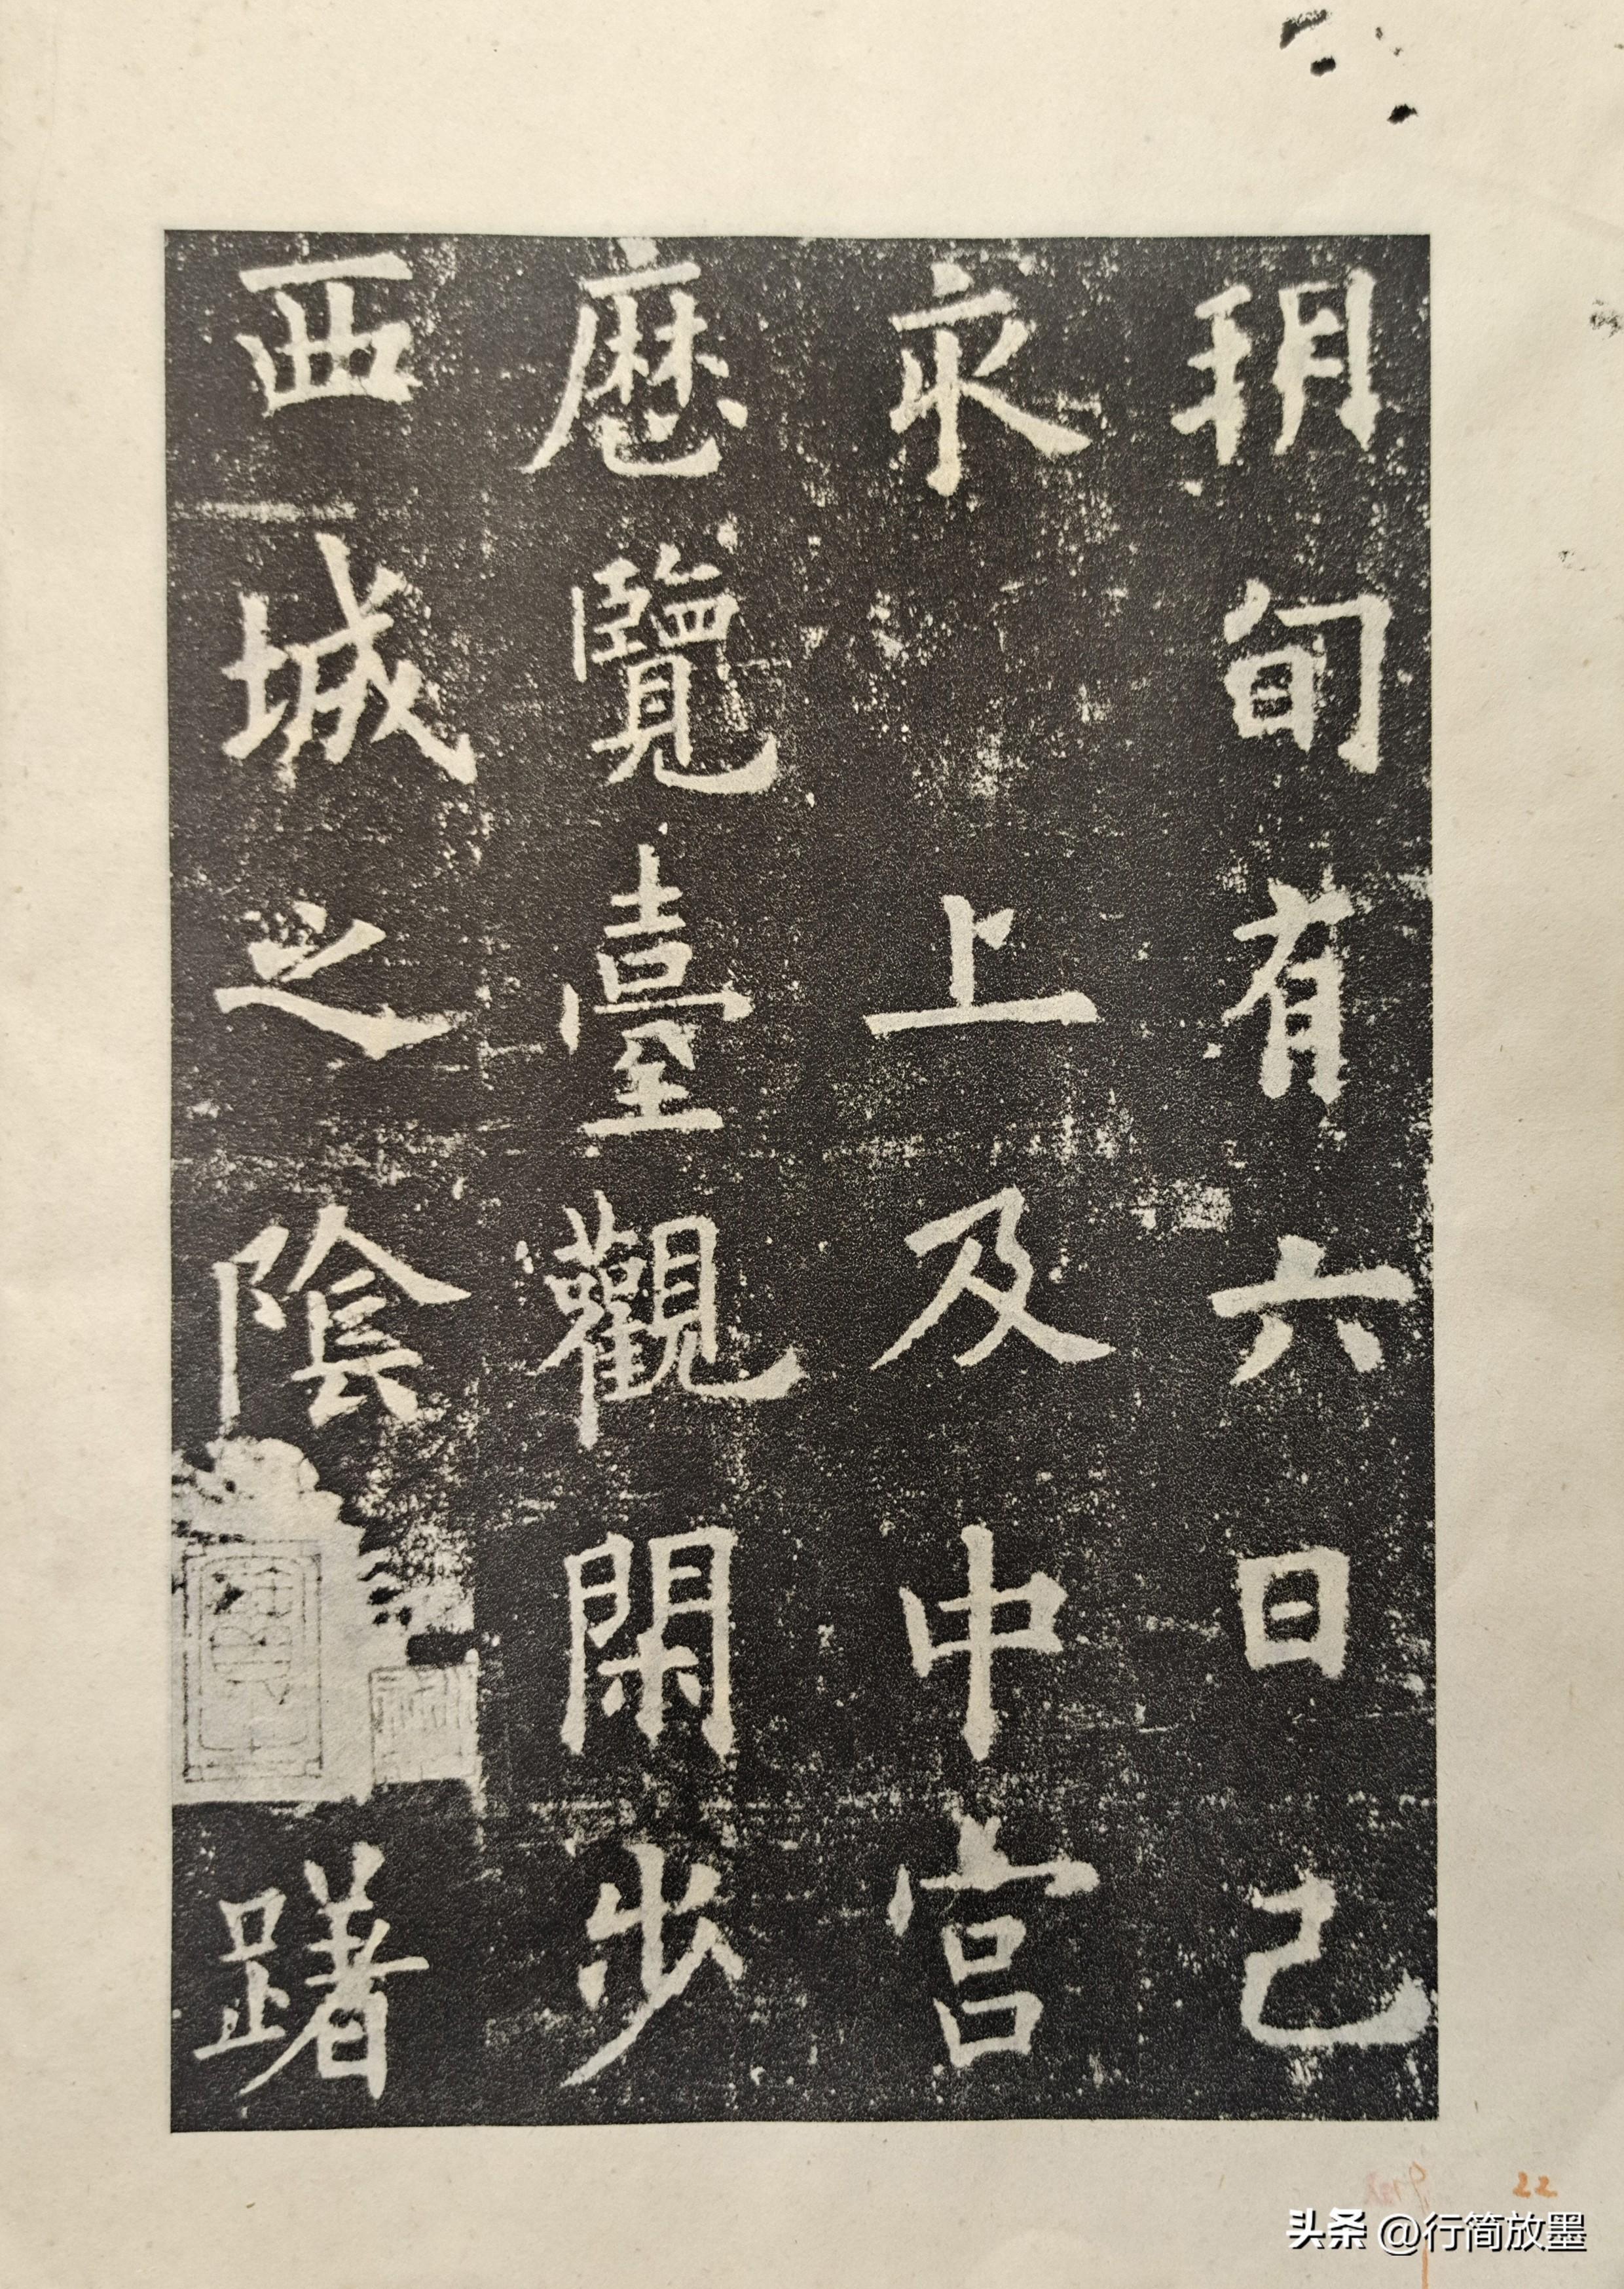 玥旬有六日己
㐪 上及中宫
歷覽臺觀閑步
西城之陰躇
22
头条 @行简放墨